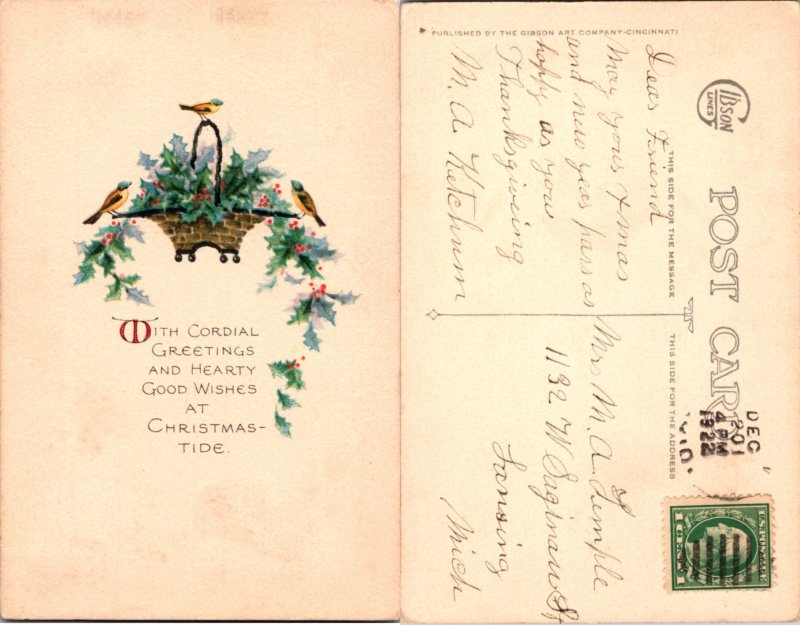 WITH CORDIAL
GREETINGS
AND HEARTY
GOOD WISHES
AT
CHRISTMAS-
TIDE.
PUBLISHED BY THE GIBSON ART COMPANY-CINCINNATI
GIBSON
LINES
POST CARD
THIS SIDE FOR THE MESSAGE
THIS SIDE FOR THE ADDRESS
Dear Friend
May yours Xmas
and new year pass as
happy as you
Thanksgiving
M. A Ketchum
DEC
201
4 PM
1922
U.S. POSTAGE
1 CENT 1
Mrs M. A Temple
1132 W Saginaw St
Lansing
Mich